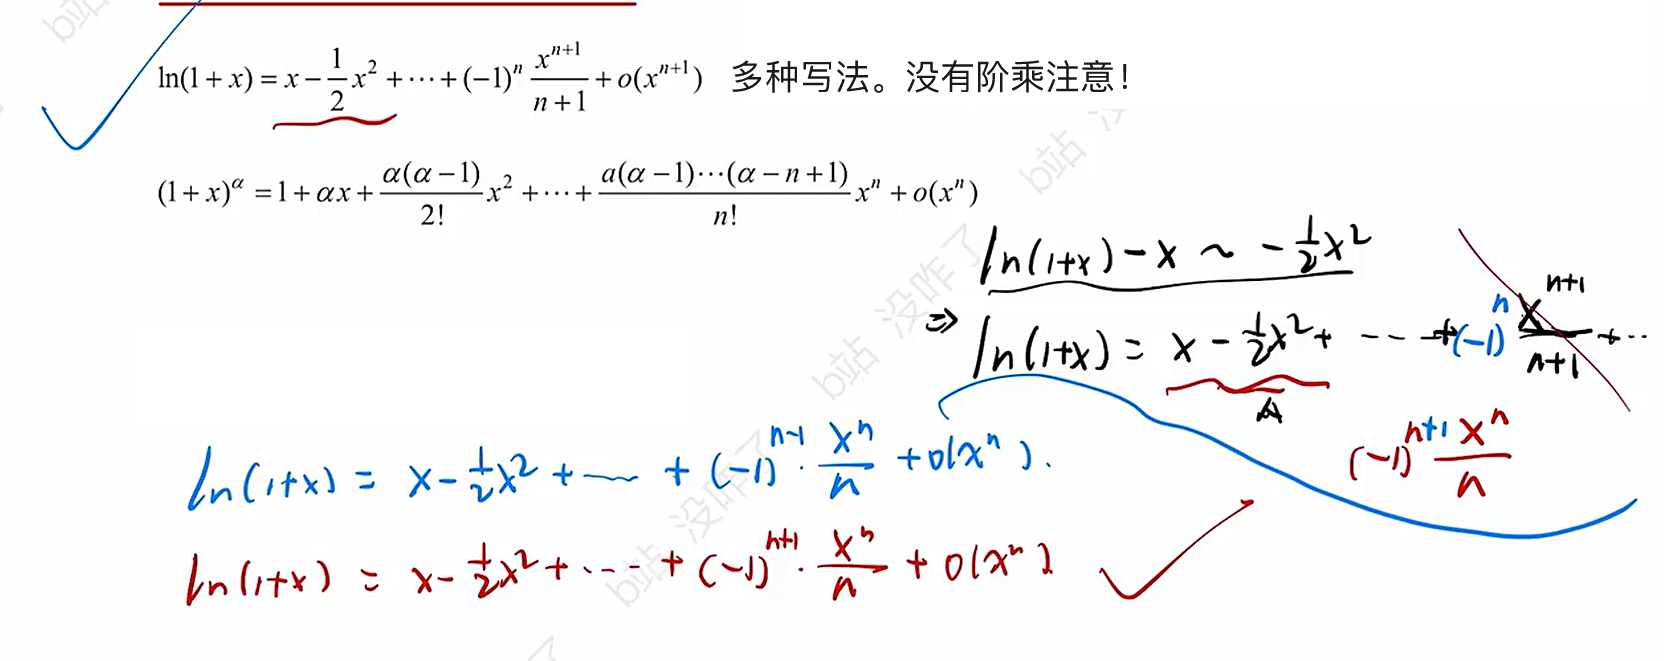 ln(1+x) = x − 1/2 x² + ⋯ + (−1)ⁿ xⁿ⁺¹/(n+1) + o(xⁿ⁺¹) 多种写法。没有阶乘注意！
(1+x)^α = 1 + αx + α(α−1)/2! x² + ⋯ + a(α−1)⋯(α−n+1)/n! xⁿ + o(xⁿ)
ln(1+x) − x ~ − 1/2 x²
⇒ ln(1+x) = x − 1/2 x² + --- + (−1)ⁿ xⁿ⁺¹/(n+1) + ⋯
A
(−1)ⁿ⁺¹ xⁿ/n
ln(1+x) = x − 1/2 x² + ⋯ + (−1)ⁿ⁻¹ · xⁿ/n + o(xⁿ).
ln(1+x) = x − 1/2 x² + ⋯ + (−1)ⁿ⁺¹ · xⁿ/n + o(xⁿ)
b站 没咋了
b站 没咋了
b站
b站 没